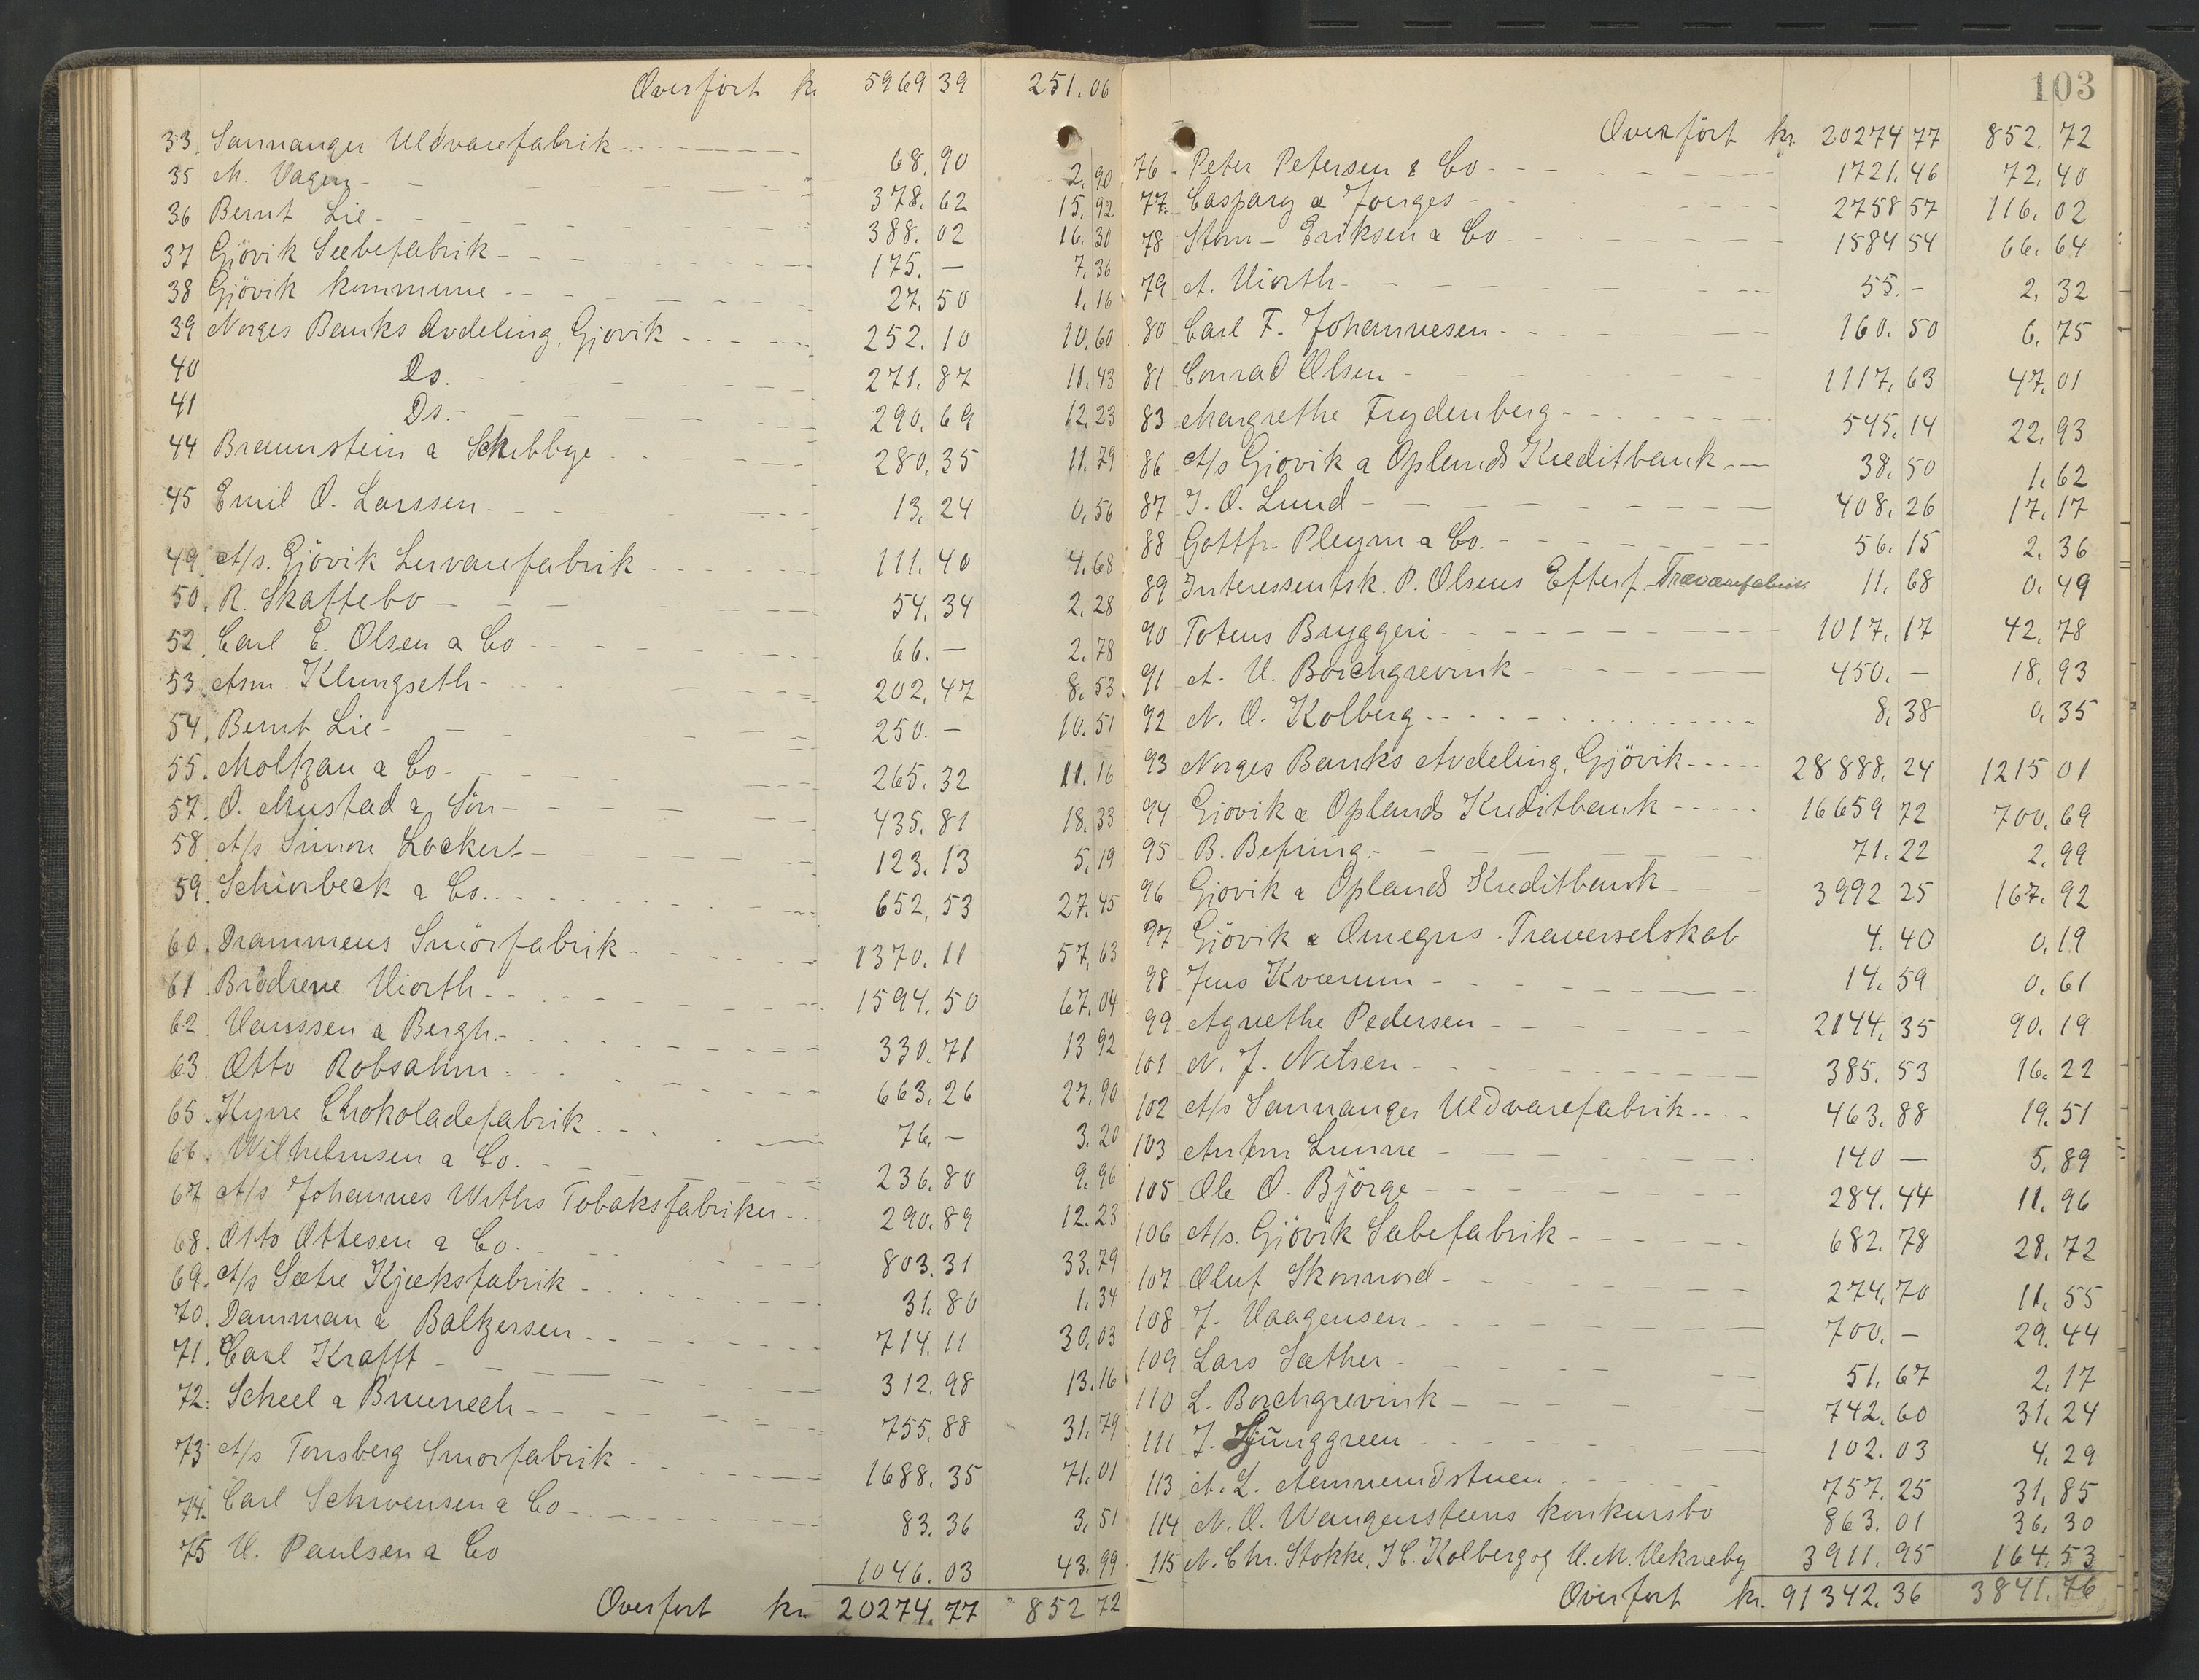 Overført kr 5969 39 251.06
33. Samnanger Uldvarefabrik 68.90 2.90
35 M. Vagen 378.62 15.92
36 Bernt Lie 388.02 16.30
37 Gjövik Sæbefabrik 175.— 7.36
38 Gjövik kommune 27.50 1.16
39 Norges Banks Avdeling, Gjövik 252.10 10.60
40 Ds. 271.87 11.43
41 Ds. 290.69 12.23
44 Braunstein & Schibbye 280.35 11.79
45 Emil O. Larssen 13.24 0.56
49. A/s. Gjövik Lervarefabrik 111.40 4.68
50. R. Skattebo 54.34 2.28
52. Carl E. Olsen & Co 66.— 2.78
53. Asm. Klungseth 202.47 8.53
54. Bernt Lie 250.— 10.51
55. Moltzau & Co 265.32 11.16
57. O. Mustad & Sön 435.81 18.33
58. A/s Simon Lockert 123.13 5.19
59. Schiorbeck & Co. 652.53 27.45
60. Drammens Smörfabrik 1370.11 57.63
61. Brödrene Hiorth 1594.50 67.04
62. Hanssen & Bergh 330.71 13 92
63. Otto Robsahm 663.26 27.90
65. Kynre Chokoladefabrik 76.— 3.20
66. Wilhelmsen & Co. 236.80 9.96
67 A/s Johannes Withs Tobaksfabriker 290.89 12.23
68. Otto Ottesen & Co. 803.31 33.79
69. A/s Sætre Kjæksfabrik 31.80 1.34
70. Damman & Baltzersen 714.11 30.03
71. Carl Krafft 312.98 13.16
72. Scheel & Bruenech 755.88 31.79
73 A/s Tonsberg Smorfabrik 1688.35 71.01
74. Carl Schwensen & Co 83.36 3.51
75 H. Paulsen & Co 1046.03 43.99
Overfort kr 20274.77 852 72
103
Overfört kr. 20274 77 852.72
76 Peter Petersen & Co 1721.46 72.40
77. Caspary & Jorges 2758 57 116.02
78 Storm-Eriksen & Co 1584 54 66.64
79 A. Hiorth 55.— 2.32
80 Carl F. Johannesen 160.50 6.75
81 Conrad Olsen 1117.63 47.01
83 Margrethe Frydenberg 545.14 22.93
86 A/s Gjovik & Oplands Kreditbank 38.50 1.62
87 J. O. Lund 408.26 17.17
88 Gottfr. Pleym & Co. 56.15 2.36
89 Interessentsk. P. Olsens Efterf. Trævarefabrik 11.68 0.49
90 Totens Bryggeri 1017.17 42.78
91 A. H. Borchgrevink 450.— 18.93
92 N. O. Kolberg 8.38 0.35
93 Norges Banks Avdeling, Gjövik 28888.24 1215 01
94 Gjovik & Oplands Kreditbank 16659 72 700.69
95 B. Befring 71.22 2.99
96 Gjovik & Oplands Kreditbank 3992 25 167.92
97 Gjövik & Omegns Traverselskab 4.40 0.19
98 Jens Kværum 14.59 0.61
99 Agnethe Pedersen 2144.35 90.19
101 N. J. Nilsen 385.53 16.22
102 A/s Samnanger Uldvarefabrik 463.88 19.51
103 Anton Lunne 140 — 5.89
105 Ole O. Björge 284.44 11.96
106 A/s. Gjövik Sæbefabrik 682.78 28.72
107 Oluf Skonnord 274.70 11.55
108 J. Haagensen 700.— 29.44
109 Lars Sæther 51.67 2.17
110 L. Borchgrevink 742.60 31.24
111 J. Ljunggreen 102.03 4.29
113 A. L. Amundstuen 757.25 31.85
114 N. O. Wangensteens konkursbo 863.01 36.30
115 N. Chr. Stokke, J C. Kolberg og H. M. Vekneby 3911.95 164.53
Overfort kr. 91342.36 3841.76